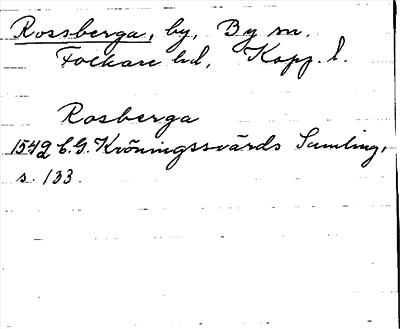 Rossberga, by, By sn.
Folkare hd, Kopp. l.
Rosberga
1542 C.G. Kröningssvärds Samling,
s. 133.